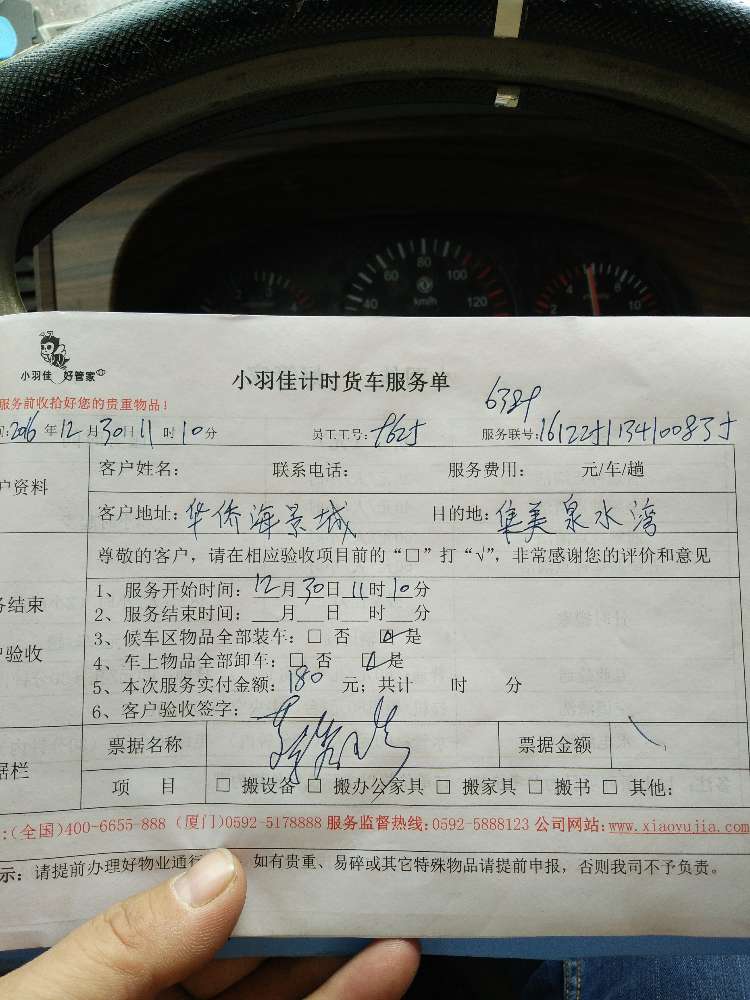 小羽佳 好管家
小羽佳计时货车服务单
服务前收拾好您的贵重物品！
间:2016年12月30日11时10分 员工工号: 服务联号:
户资料 客户姓名: 联系电话: 服务费用: 元/车/趟
客户地址:华侨海景城 目的地:集美泉水湾
尊敬的客户，请在相应验收项目前的“□”打“√”，非常感谢您的评价和意见
务结束
户验收
1、服务开始时间: 12月30日11时10分
2、服务结束时间: ___月___日___时___分
3、候车区物品全部装车: □ 否 ☑ 是
4、车上物品全部卸车: □ 否 ☑ 是
5、本次服务实付金额: 180 元; 共计 时 分
6、客户验收签字:
据栏 票据名称 票据金额
项 目 □ 搬设备 □ 搬办公家具 □ 搬家具 □ 搬书 □ 其他:
:(全国)400-6655-888 (厦门)0592-5178888 服务监督热线:0592-5888123 公司网站:www.xiaoyujia.com
示: 请提前办理好物业通行 如有贵重、易碎或其它特殊物品请提前申报，否则我司不予负责。
40 60 80 100 120
km/h